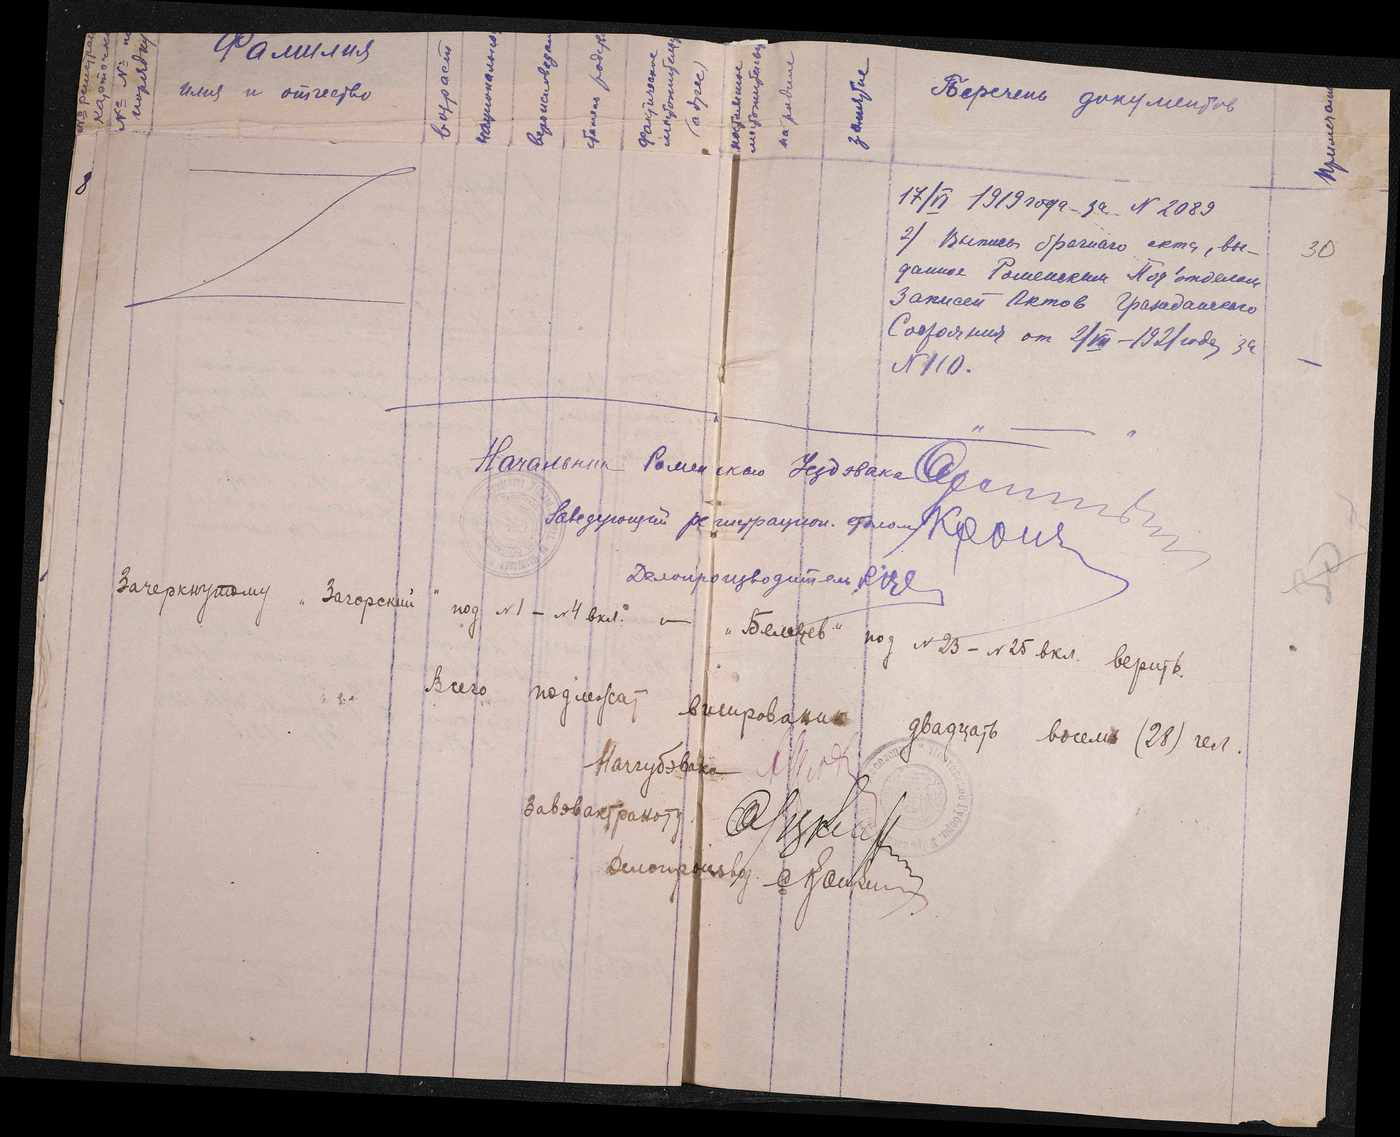 № регистрац. карточки
№ № по порядку
Фамилия
имя и отчество
возраст
национальность
вероисповедан.
степен родства
фактическое местожительство (адрес)
постоянное местожительство на родине
занятие
Перечень документов
Примечание
17/VI 1919 года за N 2089
2/ Выпись брачнаго акта, вы-
данное Роменским Под'отделом
Записей Актов Гражданского
Состояния от 2/VIII-1921 года за
N 110.
30
Начальник Роменского Уездэвака
Заведующий регистрацион. столом
Делопроизводитель
Зачеркнутому „Загорский" под N1 – N4 вкл. и „Беляев" под N23 – N25 вкл. верить.
Всего подлежат визированию двадцать восемь (28) чел.
Начгубэвака
Завэвактранотд.
Делопроизвод.